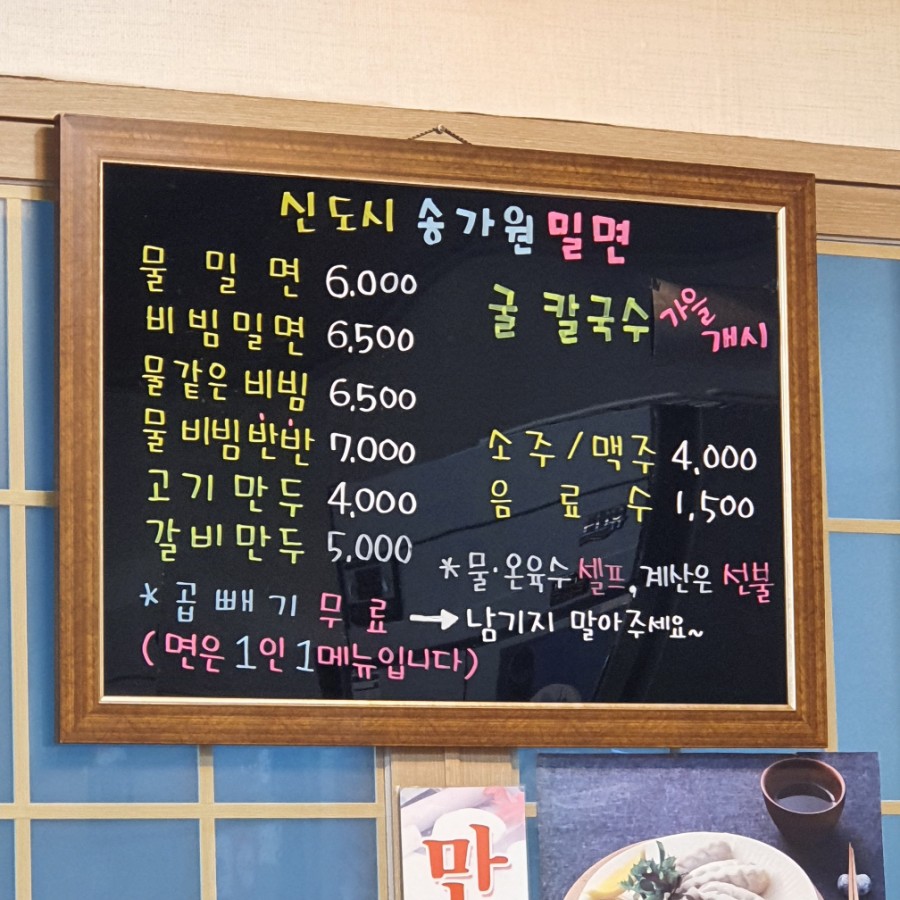 신도시 송가원 밀면
물 밀 면 6.000
비빔밀면 6,500
물같은 비빔 6,500
물 비빔 반반 7,000
고기만두 4,000
갈비만두 5,000
굴 칼국수 가을 개시
소주/맥주 4,000
음 료 수 1,500
*물·온육수 셀프, 계산은 선불
*곱빼기 무료 → 남기지 말아주세요~
(면은 1인 1메뉴입니다)
만